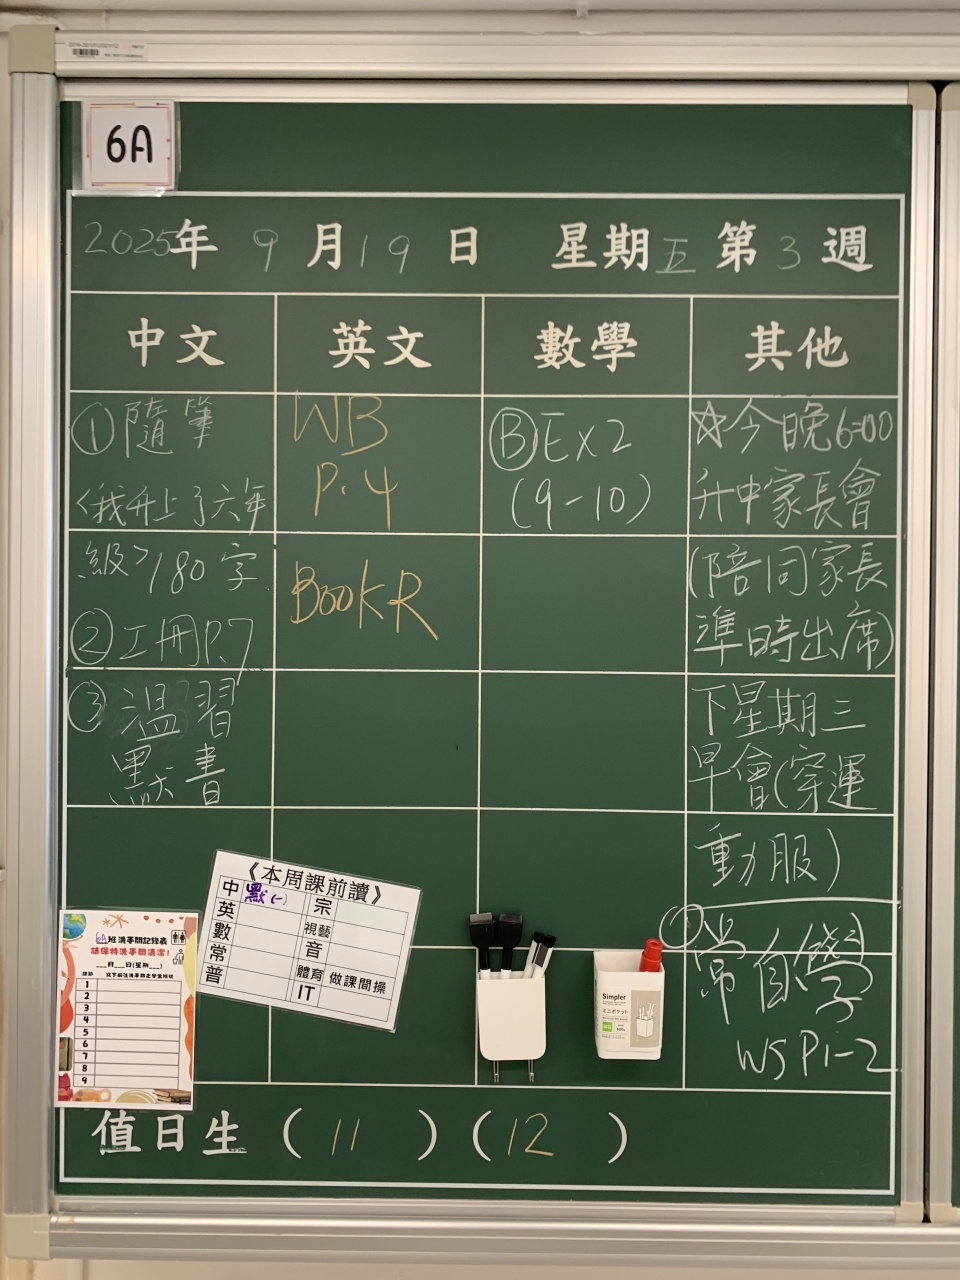 6A
2025年 9月19日 星期五 第3週
中文
①隨筆
<我升上了六年
級>180字
②工冊P.7
③溫習
默書
英文
WB
P.4
BookR
數學
ⒷEx2
(9-10)
其他
☆今晚6:00
升中家長會
(陪同家長
準時出席)
下星期三
早會(穿運
動服)
常自學
WS P1-2
《本周課前讀》
中 默(一) 宗
英 視藝
數 音
常 體育 做課間操
普 IT
6A班洗手間記錄表
請保持洗手間清潔!
___月___日(星期___)
1
2
3
4
5
6
7
8
9
Simpler
ミニポケット
值日生 (11) (12)